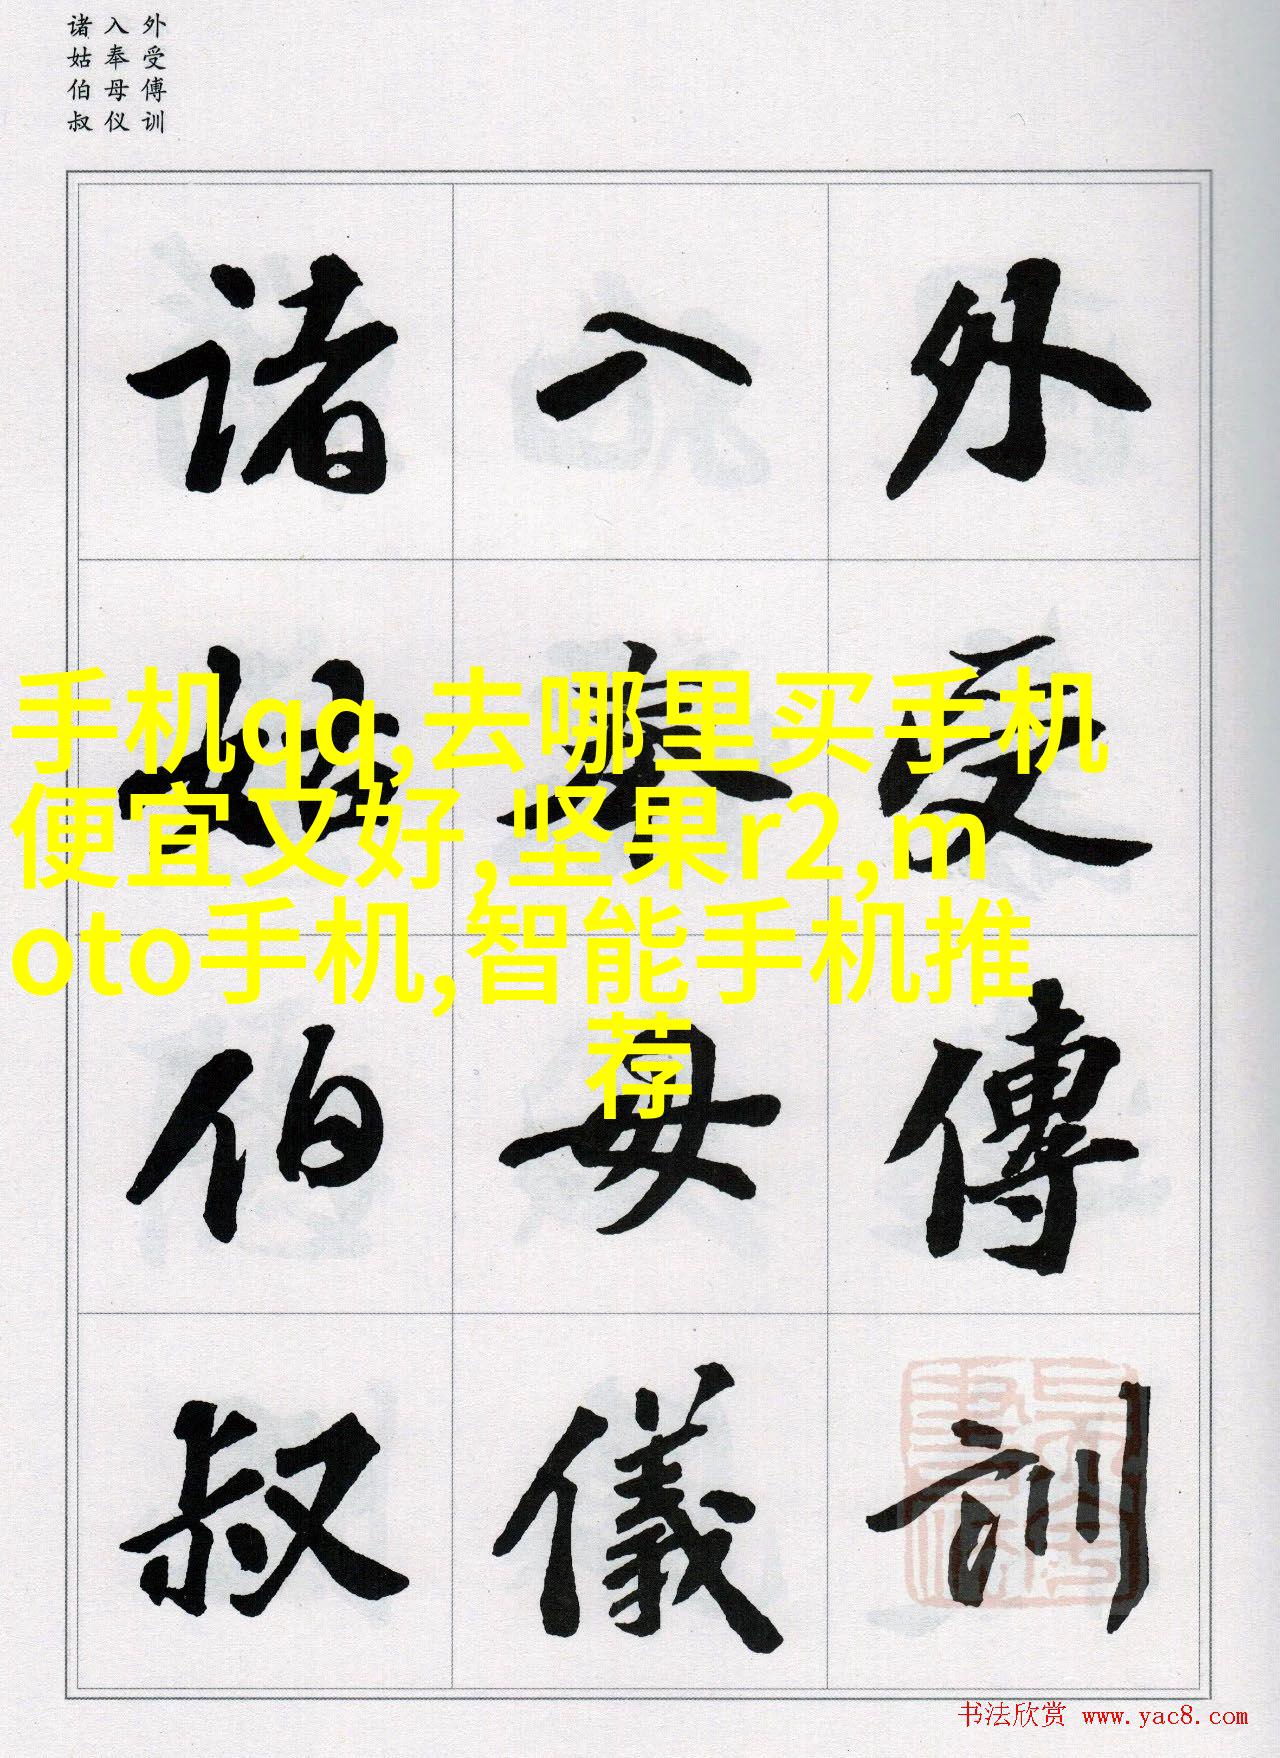 外受傅训
入奉母仪
诸姑伯叔
外受傅訓
入奉母儀
诸姑伯叔
手机qq,去哪里买手机
便宜又好,坚果r2,m
oto手机,智能手机推
荐
书法欣赏 www.yac8.com